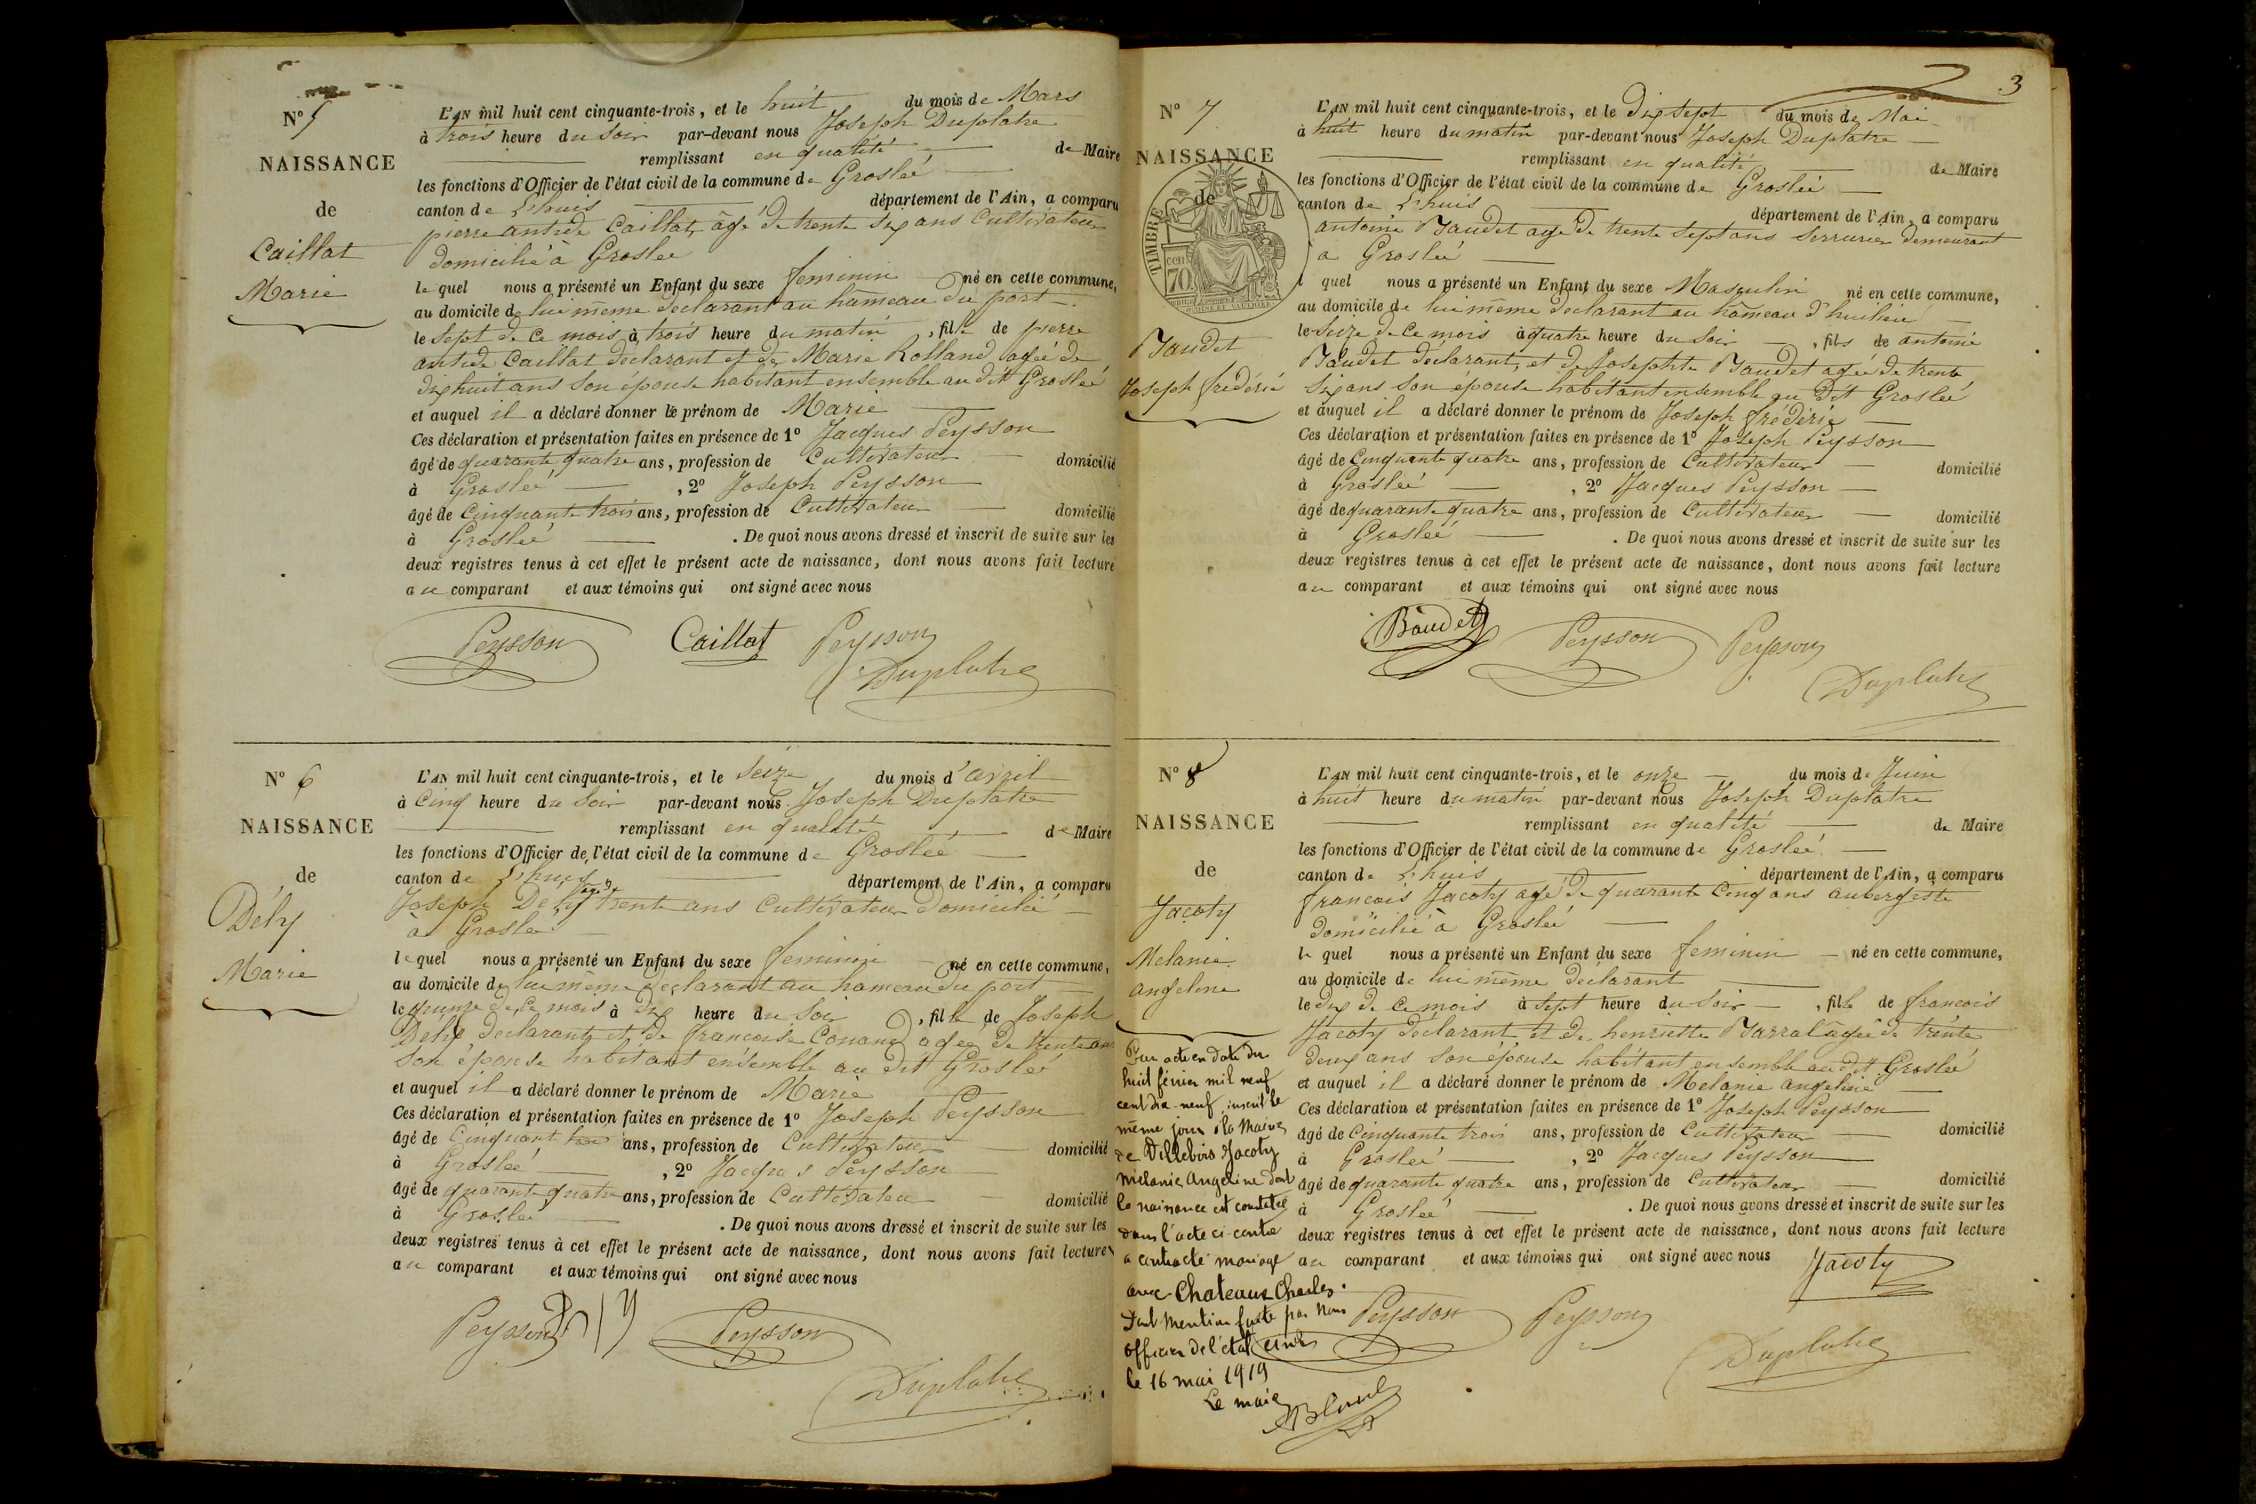 N° 5
NAISSANCE
de
Caillat
Marie
L'AN mil huit cent cinquante-trois, et le huit du mois de Mars
à trois heure du soir par-devant nous Joseph Duplatre
remplissant en qualité de Maire
les fonctions d'Officier de l'état civil de la commune de Groslée
canton de L'huis département de l'Ain, a comparu
pierre antide Caillat, âgé de trente six ans Cultivateur
domicilié à Groslée
le quel nous a présenté un Enfant du sexe feminin né en cette commune,
au domicile de lui même declarant au hameau du port
le sept de ce mois à trois heure du matin, fille de pierre
antide Caillat declarant et de Marie Rolland agée de
dix huit ans son épouse habitant ensemble au dit Groslée
et auquel il a déclaré donner le prénom de Marie
Ces déclaration et présentation faites en présence de 1° Jacques Peysson
âgé de quarante quatre ans, profession de Cultivateur domicilié
à Groslée, 2° Joseph Peysson
âgé de Cinquante trois ans, profession de Cultivateur domicilié
à Groslée. De quoi nous avons dressé et inscrit de suite sur les
deux registres tenus à cet effet le présent acte de naissance, dont nous avons fait lecture
au comparant et aux témoins qui ont signé avec nous
Peysson Caillat Peysson
Duplatre
N° 6
NAISSANCE
de
Dély
Marie
L'AN mil huit cent cinquante-trois, et le seize du mois d'avril
à Cinq heure du soir par-devant nous Joseph Duplatre
remplissant en qualité de Maire
les fonctions d'Officier de l'état civil de la commune de Groslée
canton de L'huis département de l'Ain, a comparu
Joseph Dely agé de trente ans Cultivateur domicilié
à Groslée
le quel nous a présenté un Enfant du sexe feminin né en cette commune,
au domicile de lui même declarant au hameau du port
le quinze de ce mois à dix heure du soir, fille de Joseph
Dely declarant et de francoise Conand agée de trente ans
son épouse habitant ensemble au dit Groslée
et auquel il a déclaré donner le prénom de Marie
Ces déclaration et présentation faites en présence de 1° Joseph Peysson
âgé de Cinquante trois ans, profession de Cultivateur domicilié
à Groslée, 2° Jacques Peysson
âgé de quarante quatre ans, profession de Cultivateur domicilié
à Groslée. De quoi nous avons dressé et inscrit de suite sur les
deux registres tenus à cet effet le présent acte de naissance, dont nous avons fait lecture
au comparant et aux témoins qui ont signé avec nous
Peysson Peysson
Duplatre
3
N° 7
NAISSANCE
de
TIMBRE
cen
70
Baudet
Joseph frédéric
L'AN mil huit cent cinquante-trois, et le dix sept du mois de Mai
à huit heure du matin par-devant nous Joseph Duplatre
remplissant en qualité de Maire
les fonctions d'Officier de l'état civil de la commune de Groslée
canton de L'huis département de l'Ain, a comparu
antoine Baudet agé de trente sept ans serrurier demeurant
a Groslée
l quel nous a présenté un Enfant du sexe Masculin né en cette commune,
au domicile de lui même declarant au hameau d'huilieu
le seize de ce mois à quatre heure du soir, fils de antoine
Baudet declarant, et de Josephte Baudet agée de trente
six ans son épouse habitant ensemble au Dit Groslée
et auquel il a déclaré donner le prénom de Joseph frédéric
Ces déclaration et présentation faites en présence de 1° Joseph Peysson
âgé de Cinquante quatre ans, profession de Cultivateur domicilié
à Groslée, 2° Jacques Peysson
âgé de quarante quatre ans, profession de Cultivateur domicilié
à Groslée. De quoi nous avons dressé et inscrit de suite sur les
deux registres tenus à cet effet le présent acte de naissance, dont nous avons fait lecture
au comparant et aux témoins qui ont signé avec nous
Baudet Peysson Peysson
Duplatre
N° 8
NAISSANCE
de
Jacoty
Melanie
angeline
Par acte en date du
huit février mil neuf
cent dix-neuf, inscrit le
même jour à la Mairie
de Villebois Jacoty
Mélanie Angeline dont
la naissance est constatée
dans l'acte ci-contre
a contracté mariage
avec Chateaux Charles.
Dont Mention faite par Nous
officier de l'état civil
le 16 mai 1919
Le maire
L'AN mil huit cent cinquante-trois, et le onze du mois de Juin
à huit heure du matin par-devant nous Joseph Duplatre
remplissant en qualité de Maire
les fonctions d'Officier de l'état civil de la commune de Groslée
canton de L'huis département de l'Ain, a comparu
francois Jacoty agé de quarante Cinq ans aubergiste
domicilié à Groslée
le quel nous a présenté un Enfant du sexe feminin né en cette commune,
au domicile de lui même declarant
le dix de ce mois à sept heure du soir, fille de francois
Jacoty déclarant et de henriette Barral agée de trente
deux ans son épouse habitant ensemble au dit Groslée
et auquel il a déclaré donner le prénom de Melanie angeline
Ces déclaration et présentation faites en présence de 1° Joseph Peysson
âgé de Cinquante trois ans, profession de Cultivateur domicilié
à Groslée, 2° Jacques Peysson
âgé de quarante quatre ans, profession de Cultivateur domicilié
à Groslée. De quoi nous avons dressé et inscrit de suite sur les
deux registres tenus à cet effet le présent acte de naissance, dont nous avons fait lecture
au comparant et aux témoins qui ont signé avec nous
Jacoty
Peysson Peysson
Duplatre